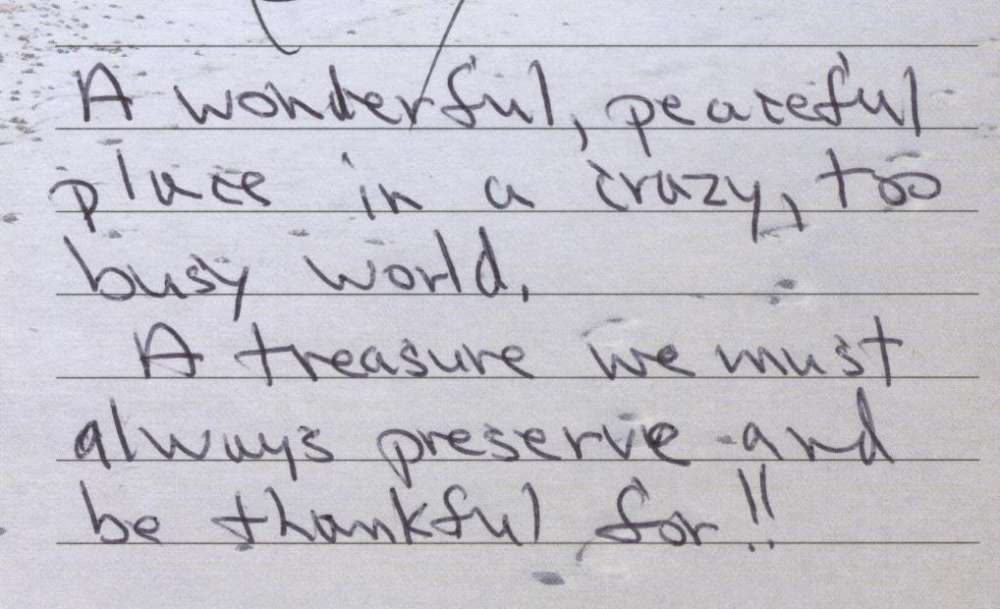 A wonderful, peaceful
place in a crazy, too
busy world.
A treasure we must
always preserve and
be thankful for!!